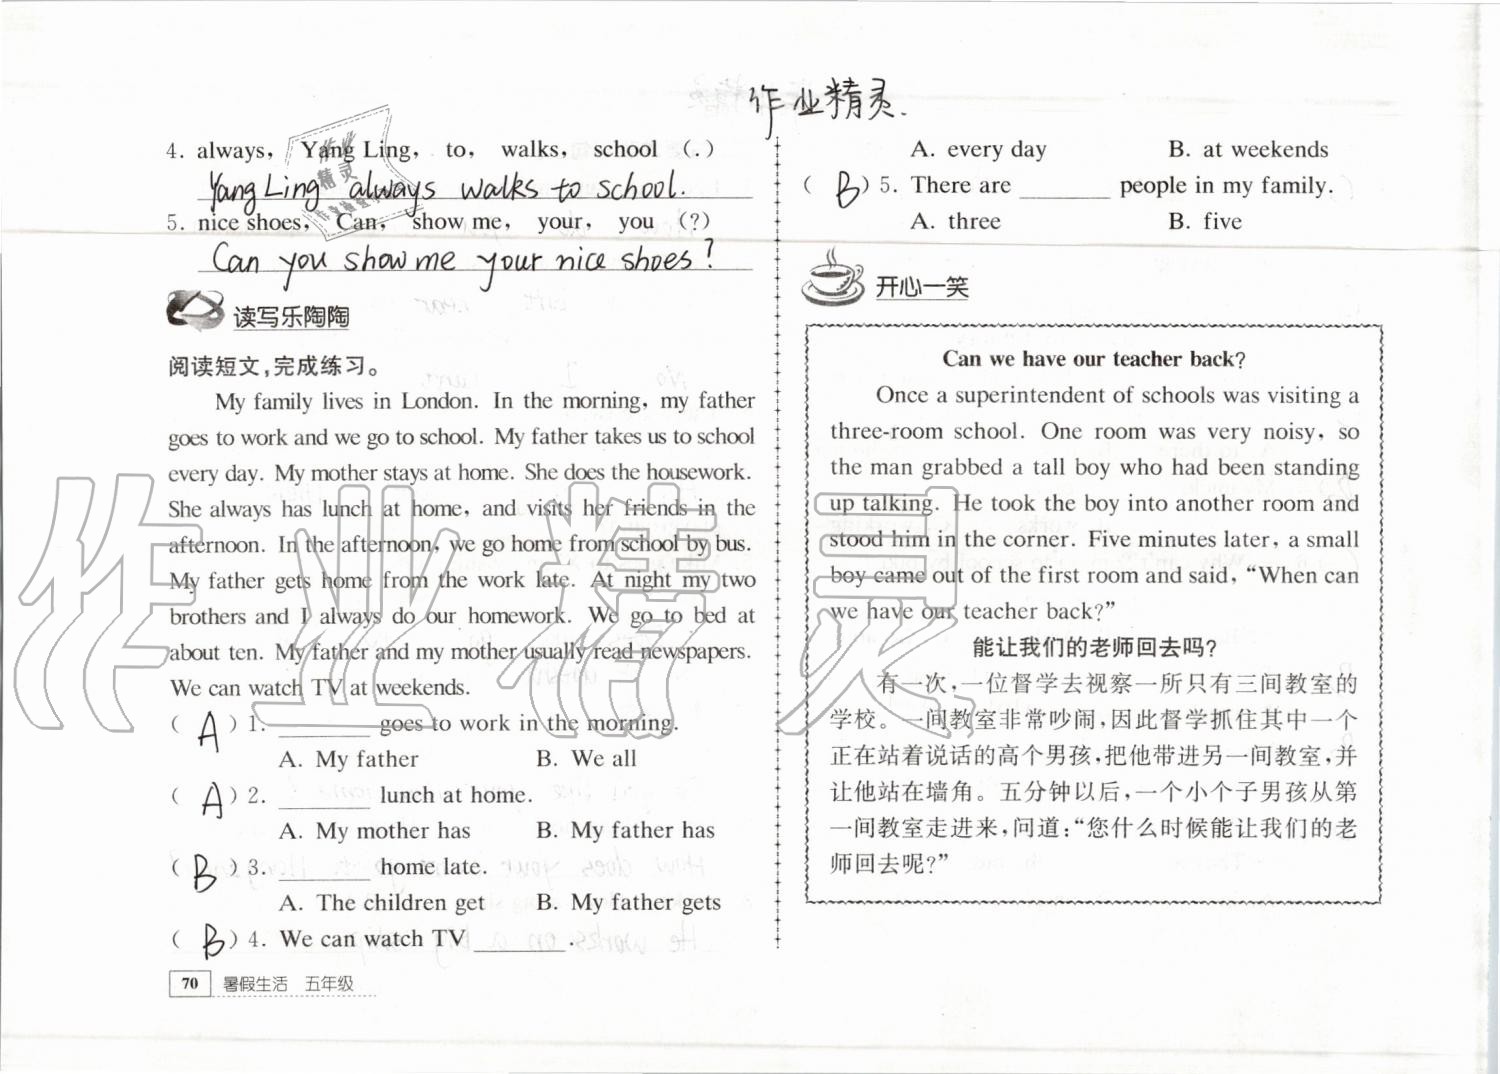 作业精灵.
4. always, Yang Ling, to, walks, school (.)
Yang Ling always walks to school.
5. nice shoes, Can, show me, your, you (?)
Can you show me your nice shoes?
读写乐陶陶
阅读短文,完成练习。
My family lives in London. In the morning, my father
goes to work and we go to school. My father takes us to school
every day. My mother stays at home. She does the housework.
She always has lunch at home, and visits her friends in the
afternoon. In the afternoon, we go home from school by bus.
My father gets home from the work late. At night my two
brothers and I always do our homework. We go to bed at
about ten. My father and my mother usually read newspapers.
We can watch TV at weekends.
( A ) 1. ________ goes to work in the morning.
A. My father B. We all
( A ) 2. ________ lunch at home.
A. My mother has B. My father has
( B ) 3. ________ home late.
A. The children get B. My father gets
( B ) 4. We can watch TV ________ .
70 暑假生活 五年级
A. every day B. at weekends
( B ) 5. There are ________ people in my family.
A. three B. five
开心一笑
Can we have our teacher back?
Once a superintendent of schools was visiting a
three-room school. One room was very noisy, so
the man grabbed a tall boy who had been standing
up talking. He took the boy into another room and
stood him in the corner. Five minutes later, a small
boy came out of the first room and said, “When can
we have our teacher back?”
能让我们的老师回去吗?
有一次,一位督学去视察一所只有三间教室的
学校。一间教室非常吵闹,因此督学抓住其中一个
正在站着说话的高个男孩,把他带进另一间教室,并
让他站在墙角。五分钟以后,一个小个子男孩从第
一间教室走进来,问道:“您什么时候能让我们的老
师回去呢?”
作业精灵